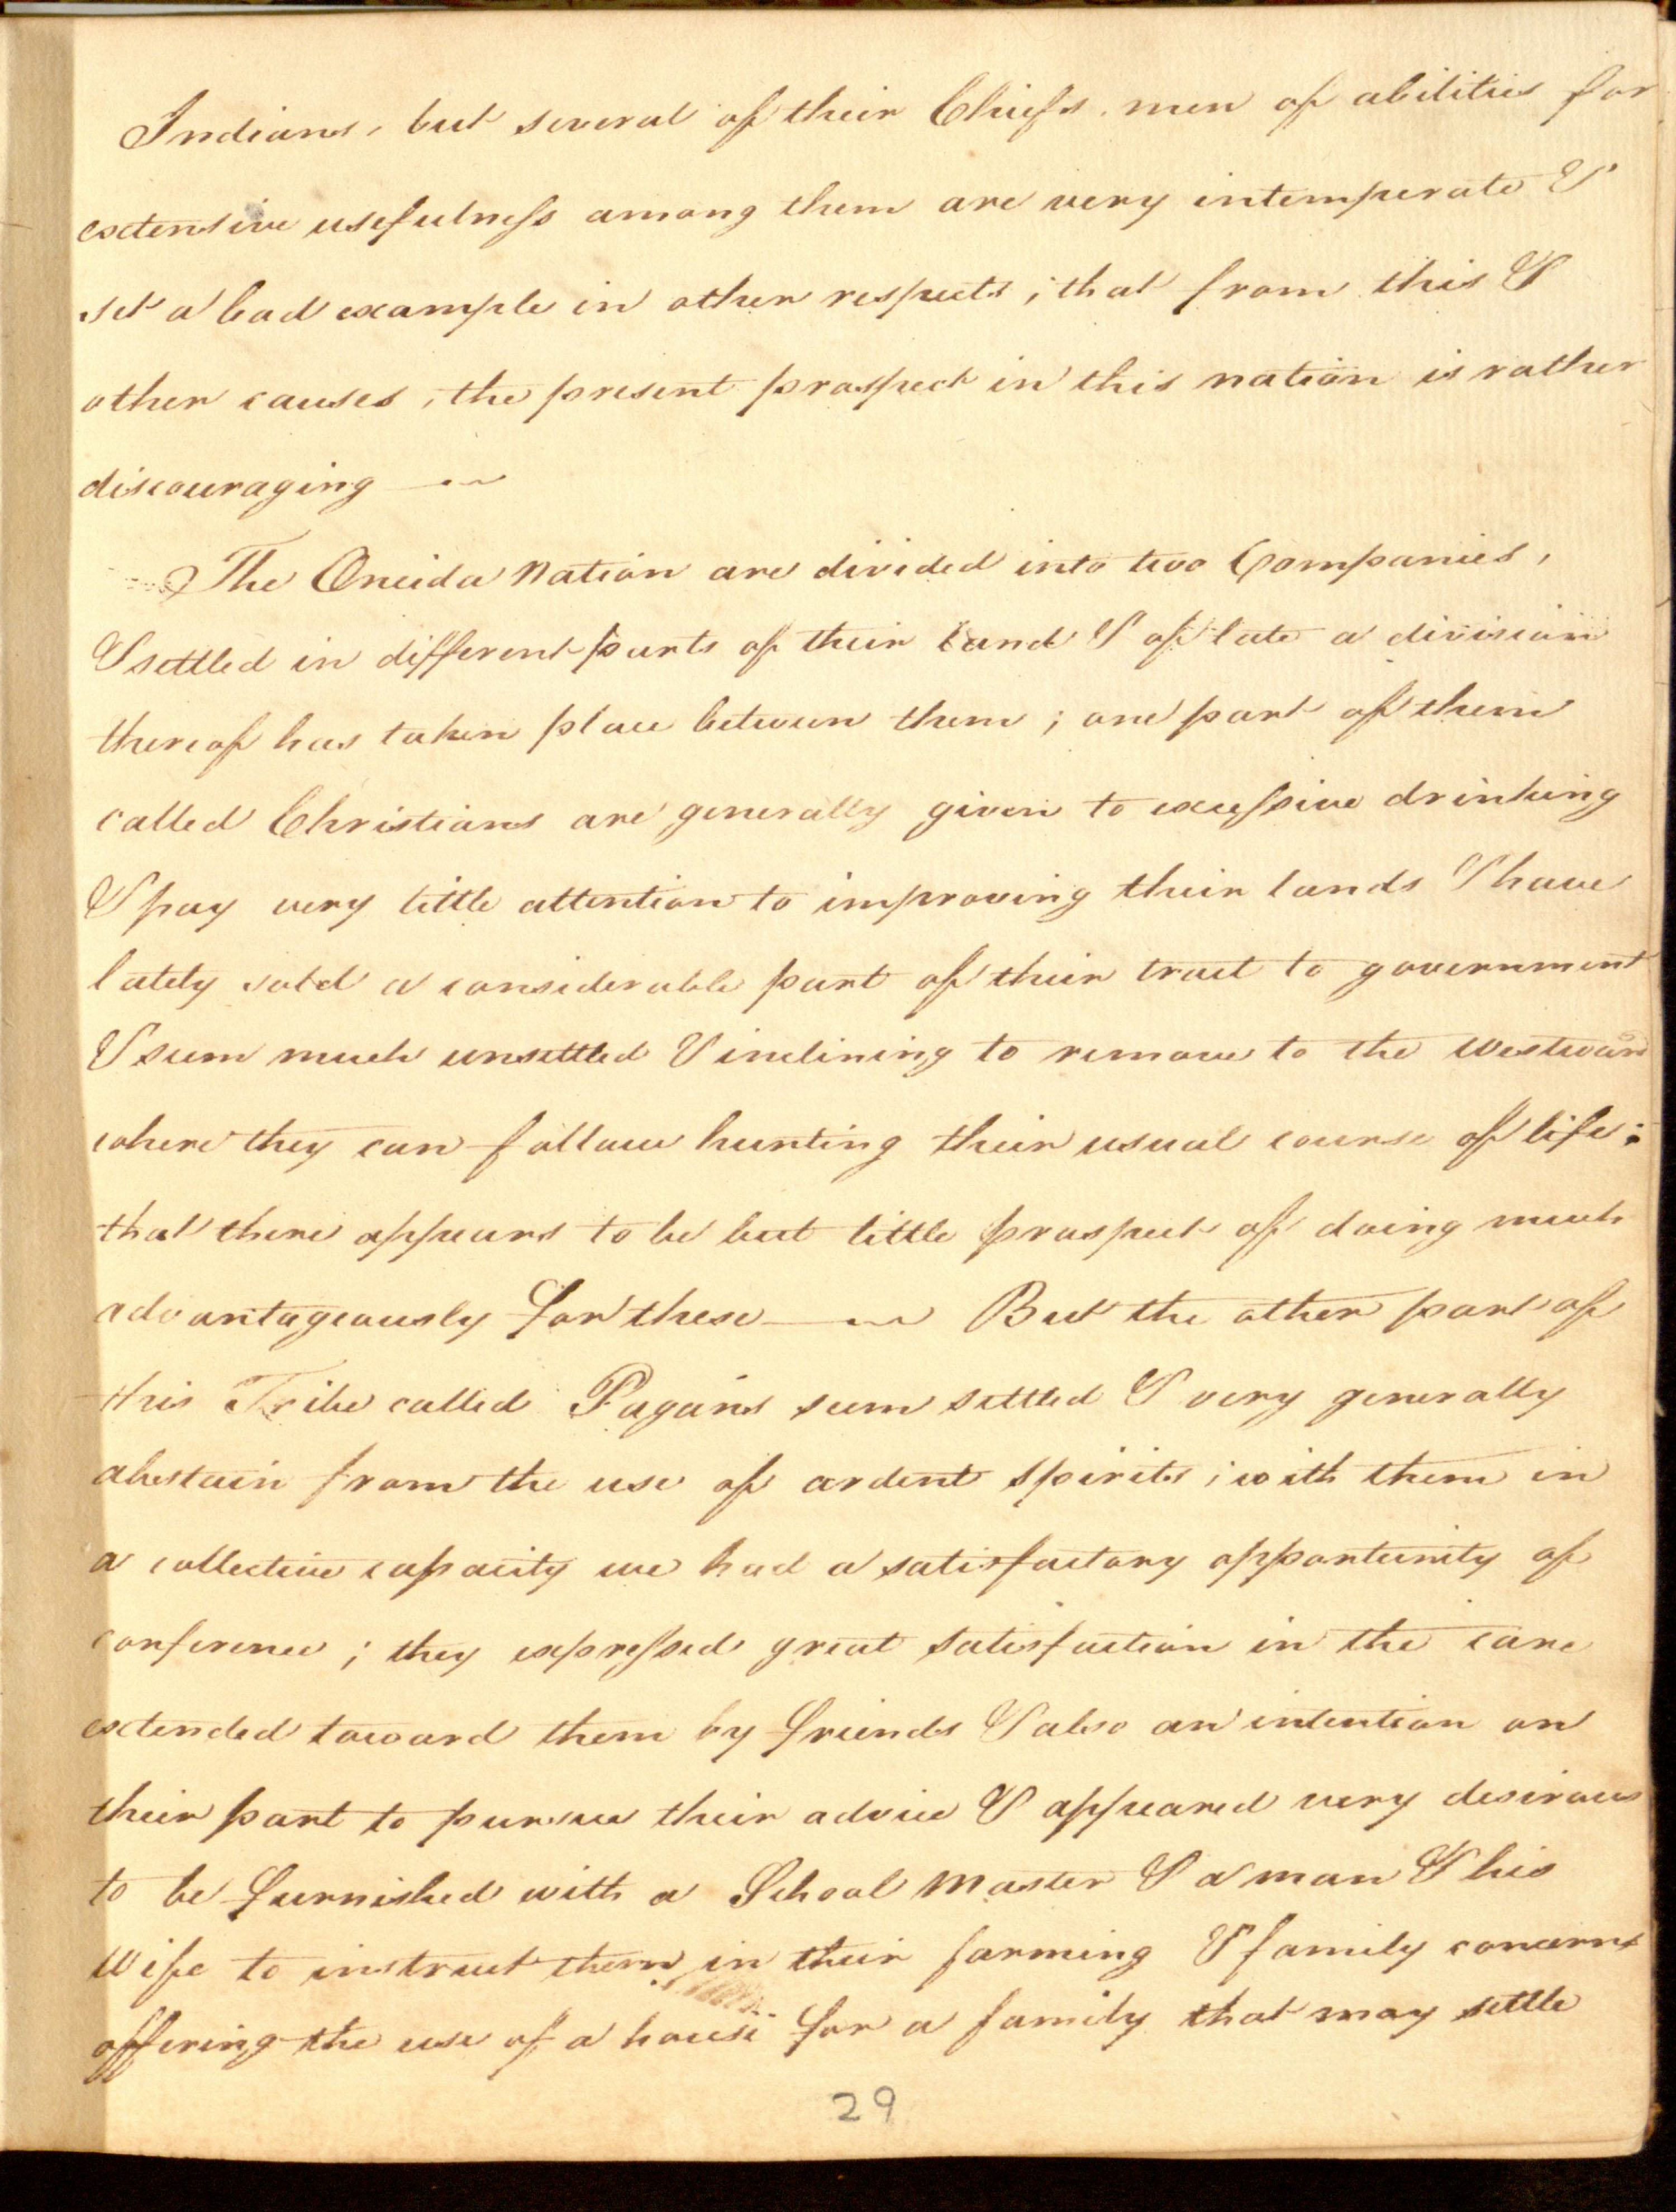 Indians, but several of their Chiefs, men of abilities for
extensive usefulness among them are very intemperate &
set a bad example in other respects; that from this &
other causes, the present prospect in this nation is rather
discouraging —
The Oneida Nation are divided into two Companies,
& settled in different parts of their Land & of late a division
thereof has taken place between them; one part of them
called Christians are generally given to excessive drinking
& pay very little attention to improving their lands & have
lately sold a considerable part of their tract to government
& seem much unsettled & inclining to remove to the Westward
where they can follow hunting their usual course of life:
that there appears to be but little prospect of doing much
advantageously for these — But the other part of
this Tribe called Pagans seem settled & very generally
abstain from the use of ardent spirits; with them in
a collective capacity we had a satisfactory opportunity of
conference; they expressed great satisfaction in the care
extended toward them by friends & also an intention on
their part to pursue their advice & appeared very desirous
to be furnished with a School Master & a man & his
Wife to instruct them in their farming & family concerns
offering the use of a house for a family that may settle
29